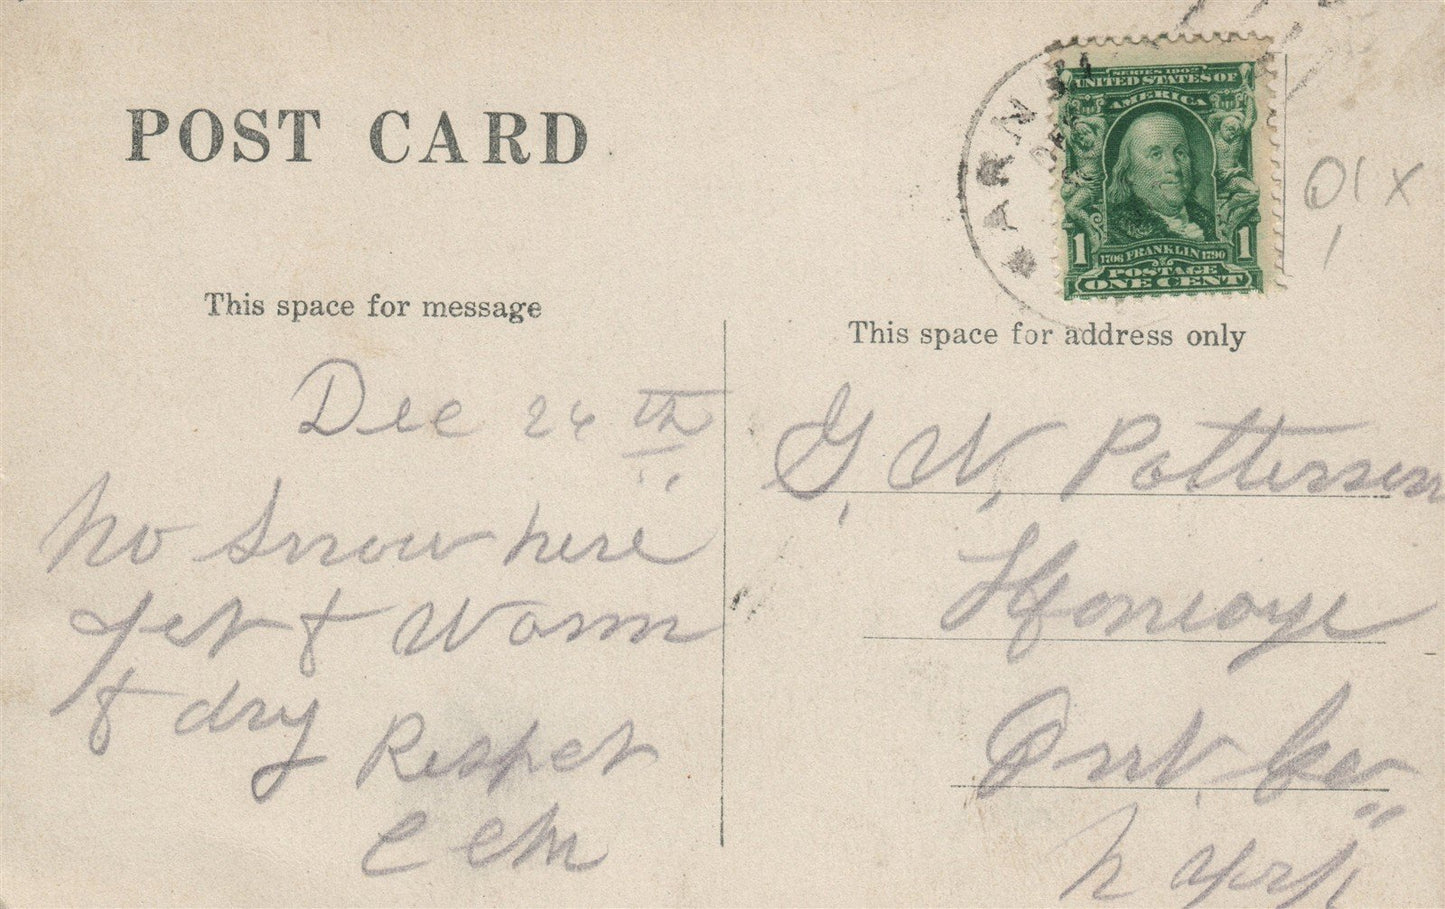 POST CARD
SERIES 1902
UNITED STATES OF
AMERICA
1706 FRANKLIN 1790
1 1
POSTAGE
ONE CENT
ARN
DEC
This space for message
This space for address only
Dec 26 th
No Snow here
yet & Warm
& dry
Respet
C C M
G. W. Pattersen
Honeoye
Ont. Co
N York